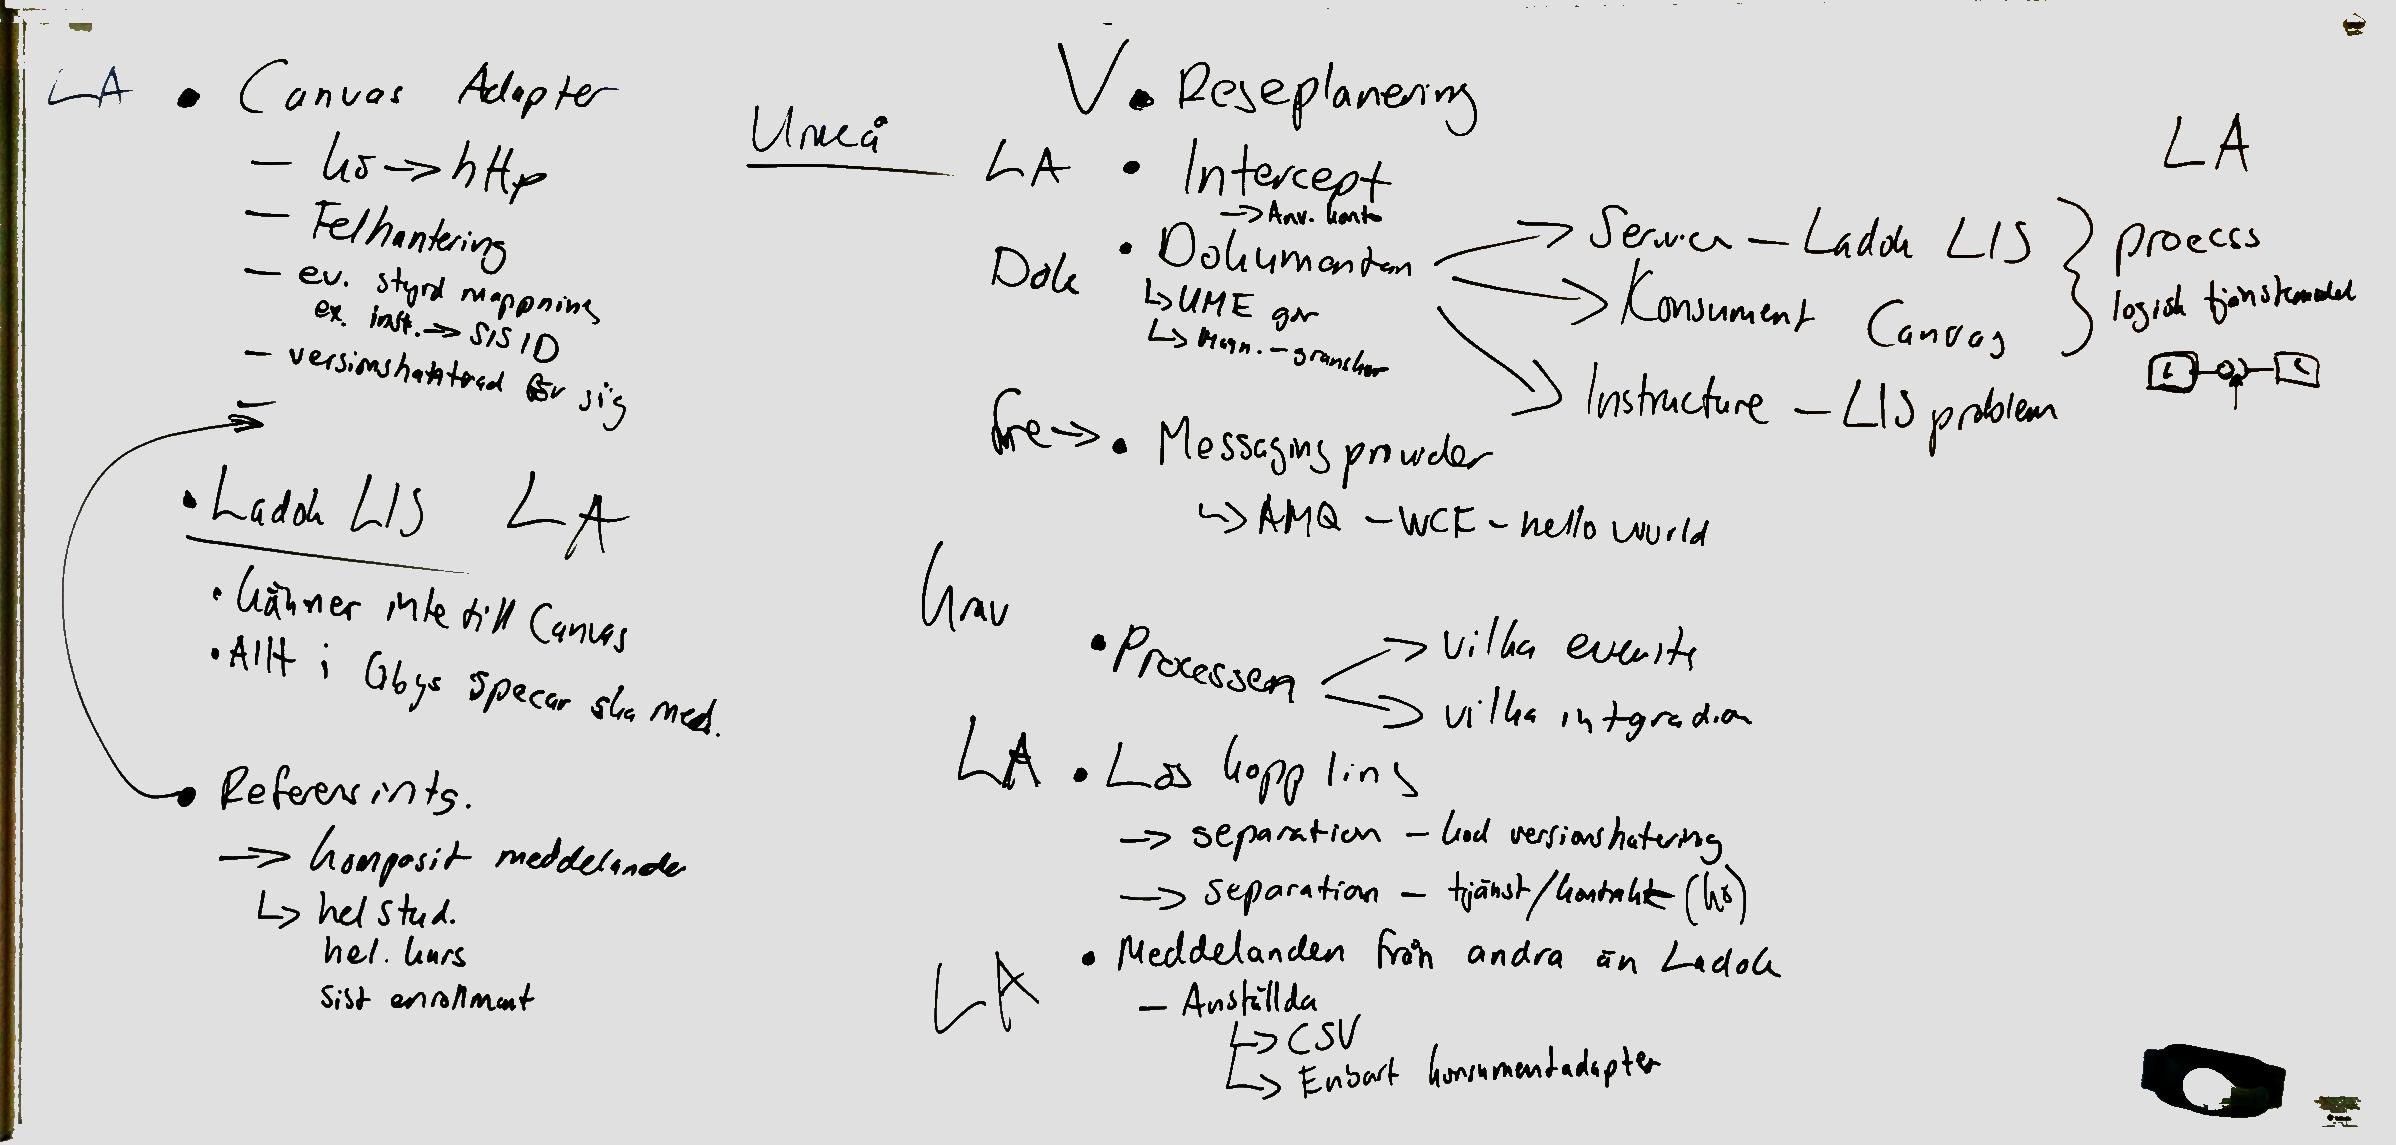 LA • Canvas Adapter
— kö → http
— Felhantering
— ev. styrd mappning
ex. inst. → SIS ID
— versionshanterad för sig
—
• Ladok LIS LA
• känner inte till Canvas
• Allt i Gbgs specar ska med.
• Referensintg.
→ komposit meddelande
↳ hel stud.
hel. kurs
sist enrollment
Umeå
V • Reseplanering
LA • Intercept
→ Anv. konto
Dok • Dokumentation
↳ UME gör
↳ granskar
→ Service — Ladok LIS
→ Konsument Canvas
→ Instructure — LIS problem
LA
} process
logisk tjänstemodel
L C
Fre → • Messaging provider
↳ AMQ — WCF — hello world
Krav
• Processen → vilka events
→ vilka intgration
LA • Lös koppling
→ separation — kod versionshatering
→ separation — tjänst/kontrakt (kö)
LA • Meddelanden från andra än Ladok
— Anställda
↳ CSV
↳ Enbart konsumentadapter